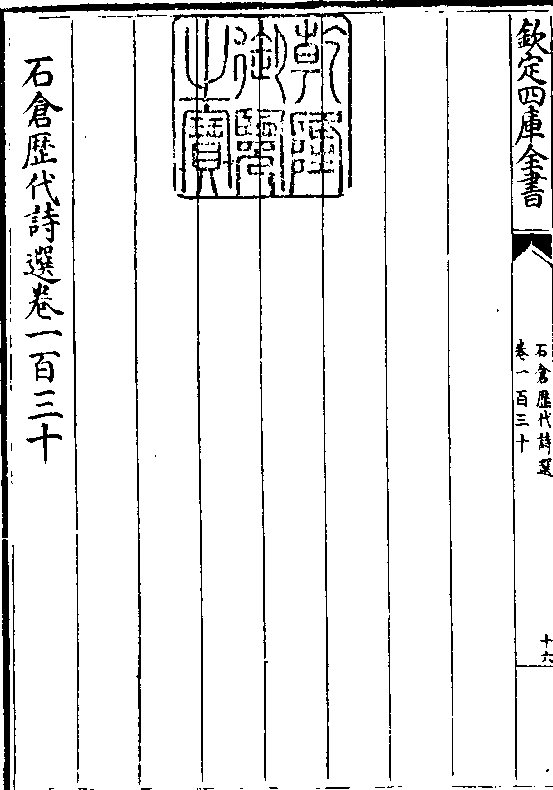 欽定四庫全書
石倉歷代詩選
卷一百三十
十六
乾隆御覽之寶
石倉歷代詩選卷一百三十